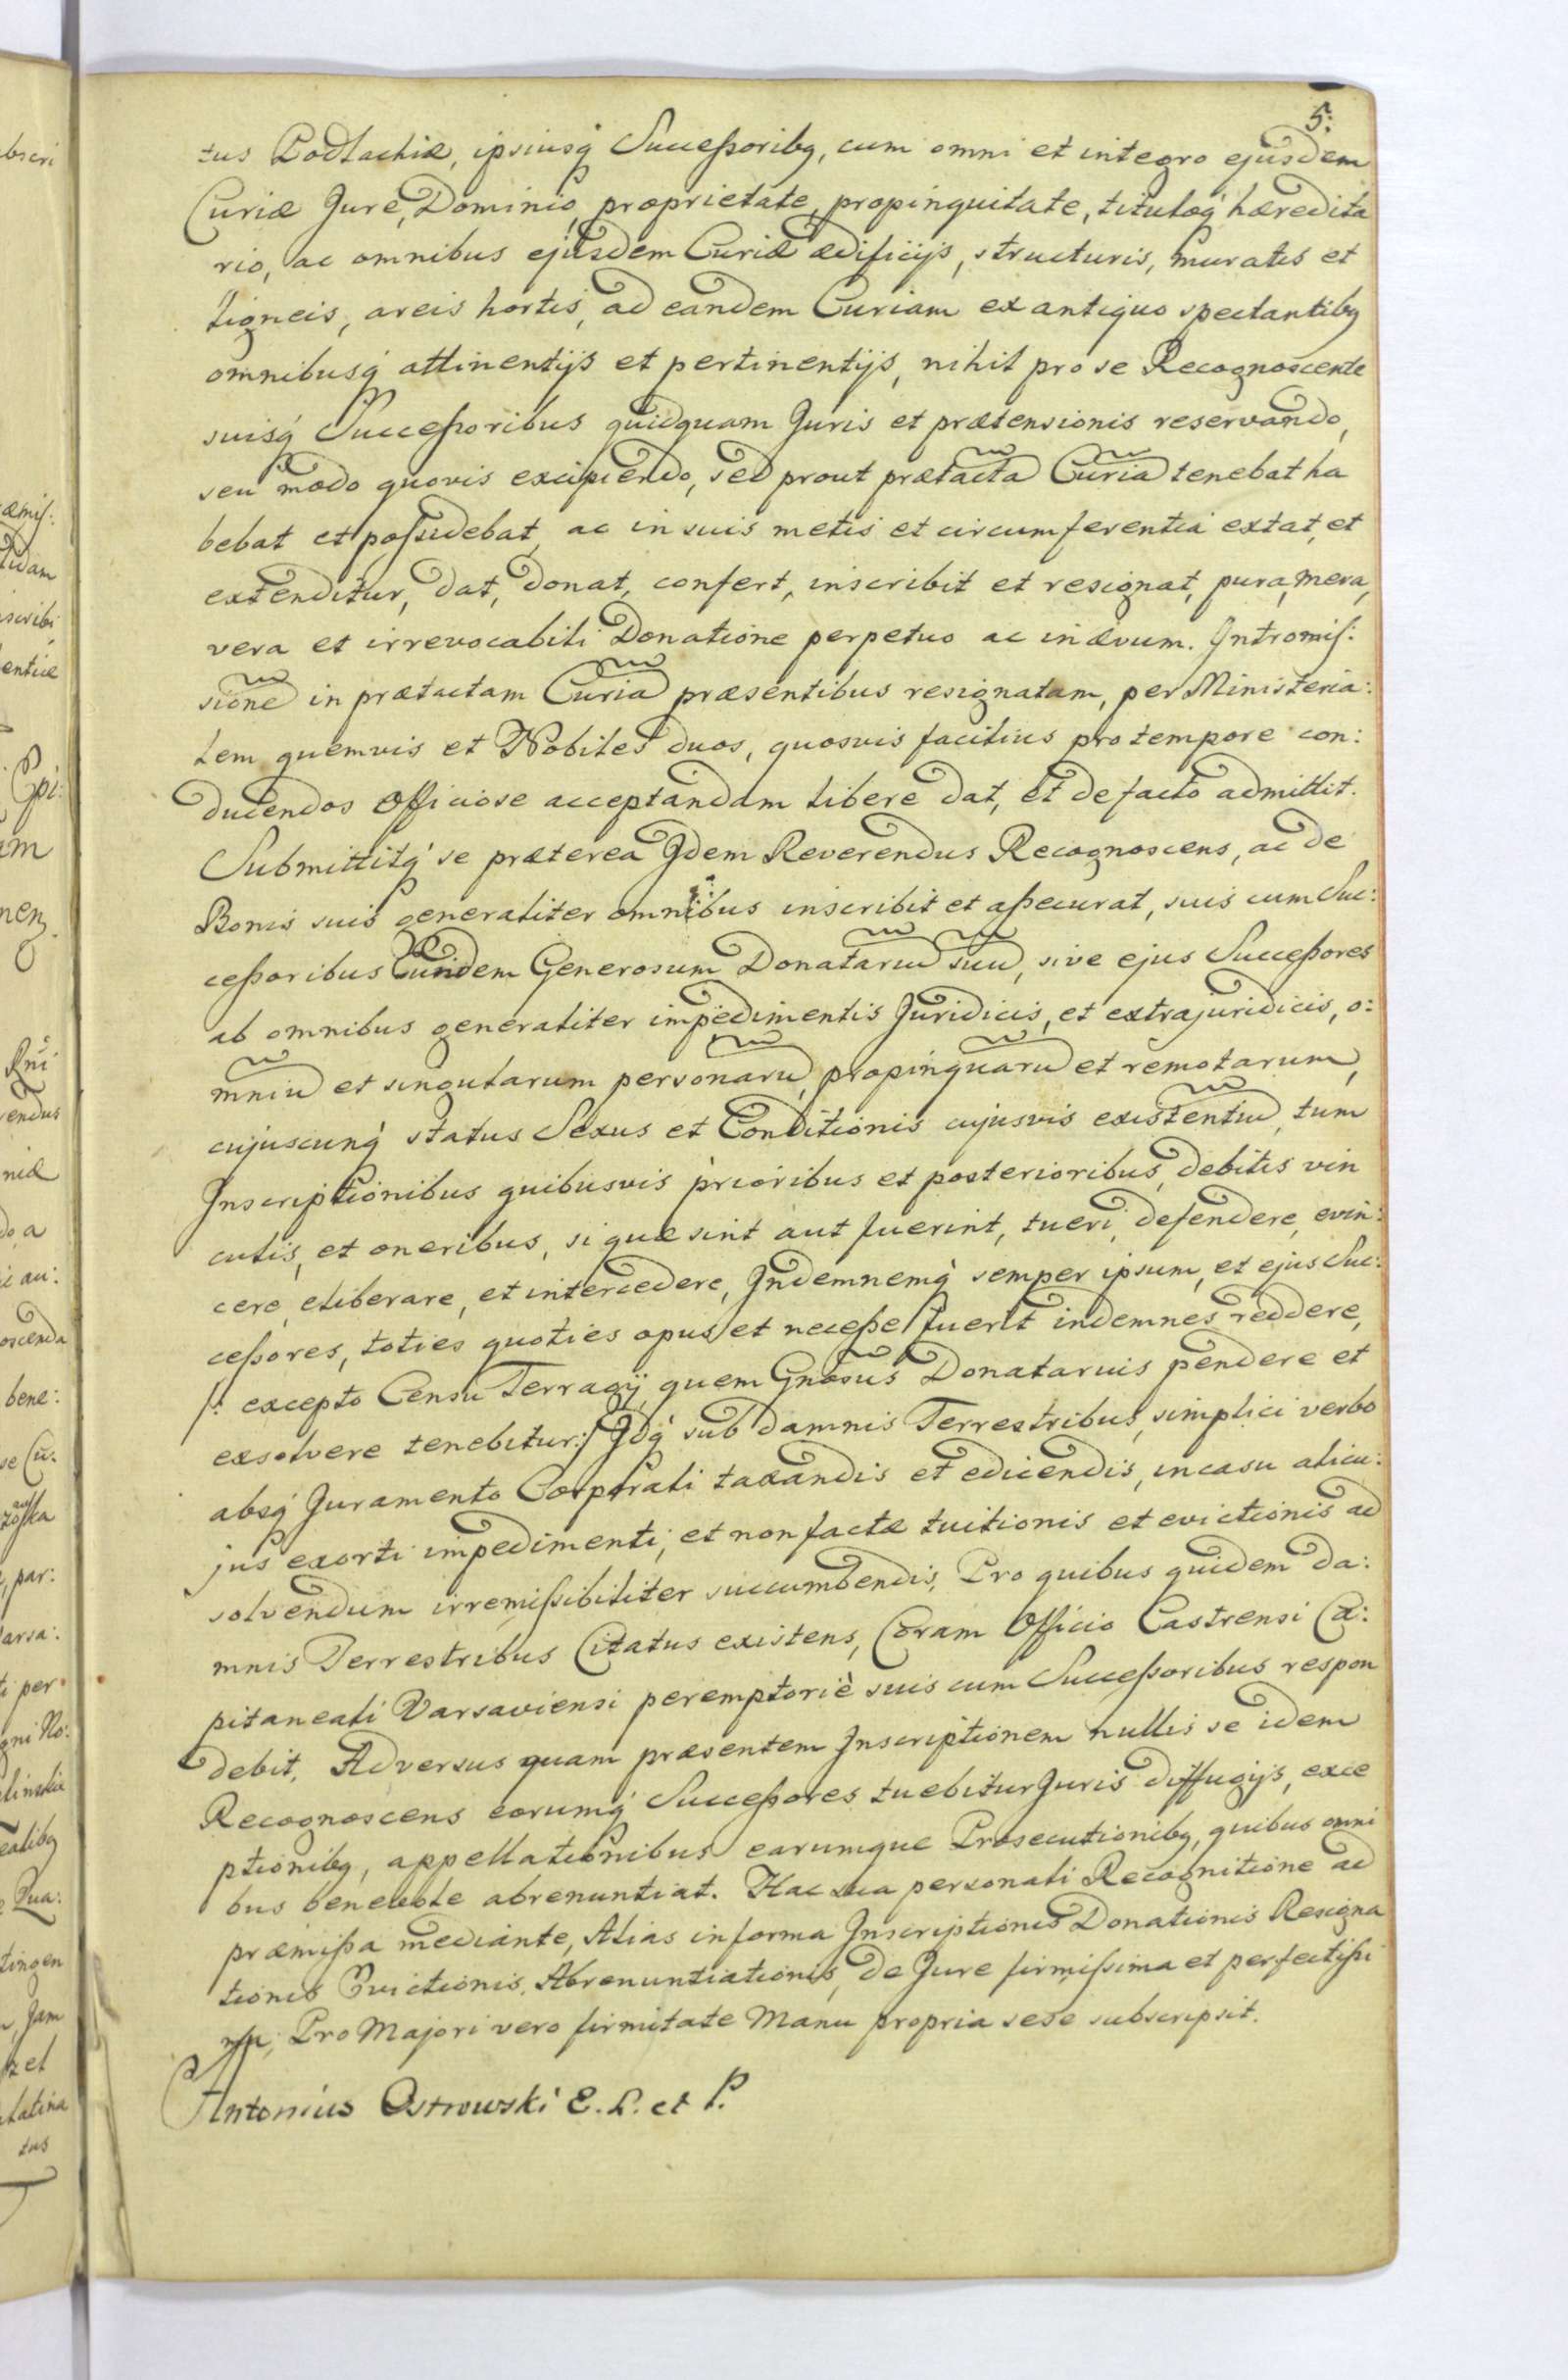 5.
tus Podlachiæ, ipsiusq́ Succeßoribq, cum omni et integro ejusdem
Curiæ Jure, Dominio, proprietate, propinquitate, tituloq́ hæredita
rio, ac omnibus ejusdem Curiæ ædificijs, structuris, muratis et
ligneis, areis hortis, ad eandem Curiam ex antiquo spectantibq
omnibusq́ attinentijs et pertinentijs, nihil pro se Recognoscente
suisq́ Succeßoribus quidquam Juris et prætensionis reservando,
seu modo quovis excipiendo, sed prout prætacta Curia tenebat ha
bebat et poſsidebat, ac in suis metis et circumferentia extat, et
extenditur, dat, donat, confert, inscribit et resignat, pura, mera,
vera et irrevocabili Donatione perpetuo ac in ævum. Intromiſ:
sione in prætactam Curia præsentibus resignatam, per Ministeria:
lem quemvis et Nobiles duos, quosvis facilius pro tempore con:
ducendos Officiose acceptandam libere dat, et de facto admittit.
Submittitq́ se præterea Idem Reverendus Recognoscens, ac de
Bonis suis generaliter omnibus inscribit et aßecurat, suis cum Suc:
ceßoribus Eundem Generosum Donatariu suu, sive ejus Succeßores
ab omnibus generaliter impedimentis Juridicis, et extrajuridicis, o:
mniu et singularum personaru, propinquaru et remotarum,
cujuscunq́ status Sexus et Conditionis cujusvis existentiu, tum
Inscriptionibus quibusvis prioribus et posterioribus, debitis vin
culis, et oneribus, si quæ sint aut fuerint, tueri, defendere, evin:
cere, eliberare, et intercedere, Indemnemq́ semper ipsum, et ejus Suc:
ceßores, toties quoties opus et neceße fuerit indemnes reddere,
/: excepto Censu Terragij, quem Gnosus Donatarius pendere et
exsolvere tenebitur :/ Idq́ sub damnis Terrestribus, simplici verbo
absq́ Juramento Corporali taxandis et edicendis, in casu alicu:
jus exorti impedimenti, et non factæ tuitionis et evictionis ad
solvendum irremiſsibiliter succumbendis, Pro quibus quidem da:
mnis Terrestribus Citatus existens, Coram Officio Castrensi Ca:
pitaneali Varsaviensi peremptoriè suis cum Succeßoribus respon
debit. Adversus quam præsentem Inscriptionem nullis se idem
Recognoscens eorumq́ Succeßores tuebitur Juris diffugijs, exce
ptionibq, appellationibus earumque Prosecutionibq, quibus omni
bus benevole abrenuntiat. Hac sua personali Recognitione ad
præmißa mediante, Alias in forma Inscriptionis Donationis Resigna
tionis Evictionis, Abrenuntiationis, de Jure firmiſsima et perfectiſsi
ma, Pro Majori vero firmitate Manu propria sese subscripsit.
Antonius Ostrowski E. L. et P.